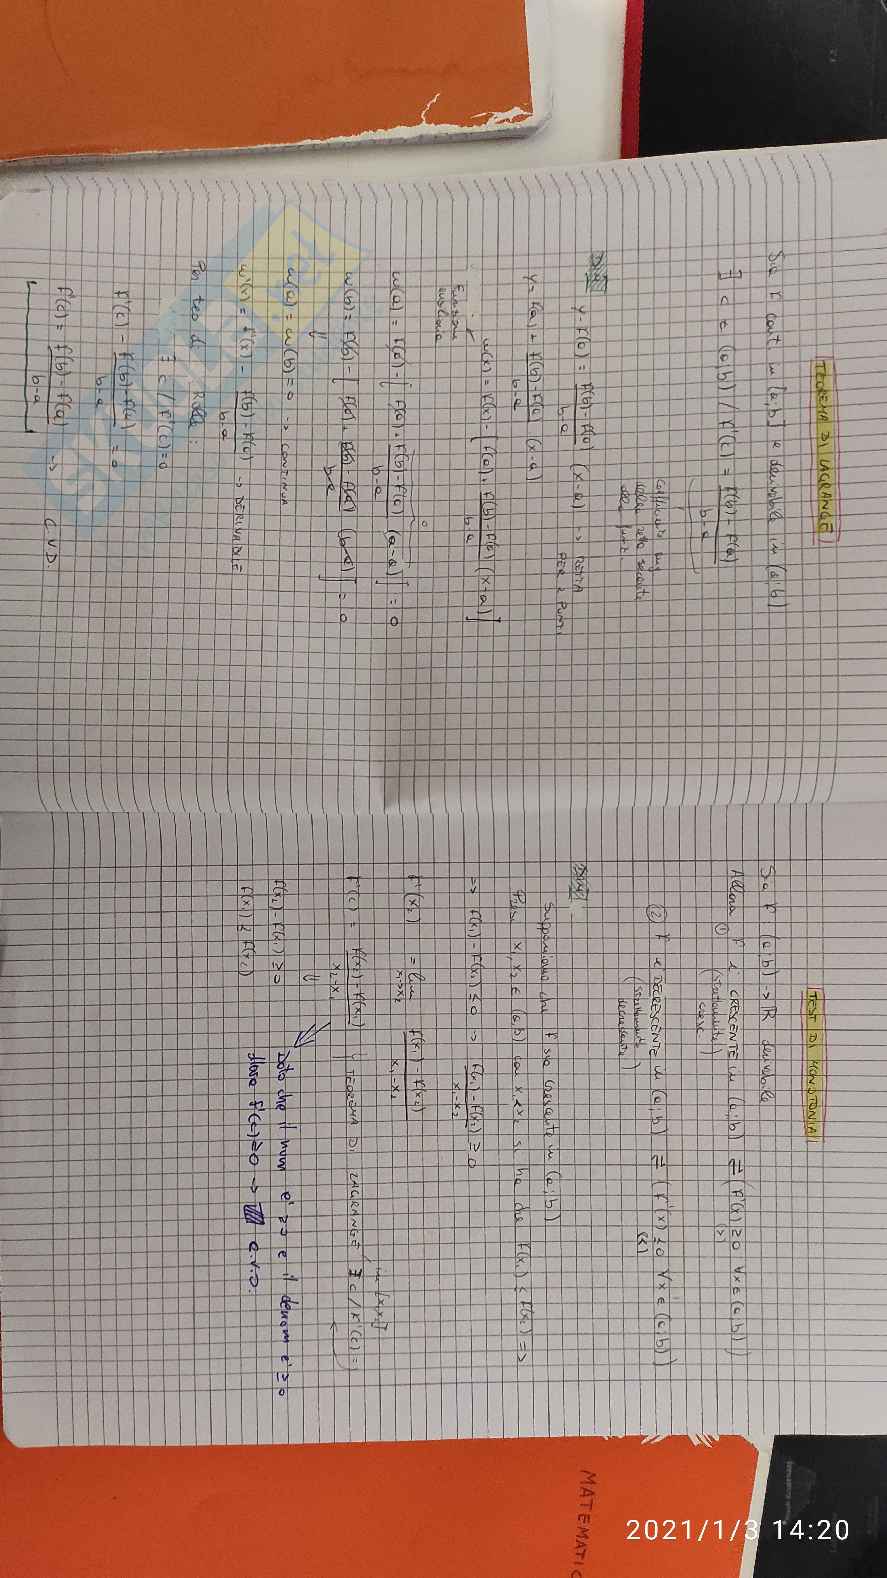 TEOREMA DI LAGRANGE
Sia f cont. in [a;b] e derivabile in (a;b)
∃ c ∈ (a;b) / f'(c) = f(b)-f(a) / b-a
coefficiente ang
della retta secante
Dim
y-f(a) = f(b)-f(a) / b-a (x-a) -> RETTA
PER 2 PUNTI
y = f(a) + f(b)-f(a) / b-a (x-a)
w(x) = f(x) - [f(a) + f(b)-f(a) / b-a (x-a)]
Funzione
ausiliaria
w(a) = f(a) - [f(a) + f(b)-f(a) / b-a (a-a)] = 0
w(b) = f(b) - [f(a) + f(b)-f(a) / b-a (b-a)] = 0
⇓
w(a) = w(b) = 0 -> CONTINUA
w'(x) = f'(x) - f(b)-f(a) / b-a -> DERIVABILE
Per teo di Rolle:
∃ c / f'(c)=0
f'(c) - f(b)+f(a) / b-a = 0
f'(c) = f(b)-f(a) / b-a -> C.V.D.
TEST DI MONOTONIA
Sia f (a;b) -> R derivabile
Allora ① f è CRESCENTE in (a;b) ⇄ (f'(x) ≥ 0 ∀x ∈ (a;b))
(strettamente
cresc.) (>)
② f è DECRESCENTE in (a;b) ⇄ (f'(x) ≤ 0 ∀x ∈ (a;b))
(strettamente
decrescente) (<)
Dim
Supponiamo che f sia crescente in (a;b)
Presi x₁,x₂ ∈ (a,b) con x₁<x₂ si ha che f(x₁) ≤ f(x₂) =>
=> f(x₁) - f(x₂) ≤ 0 => f(x₁)-f(x₂) / x₁-x₂ ≥ 0
f'(x₂) = lim x₁->x₂ f(x₁)-f(x₂) / x₁-x₂
in [x₁x₂]
f'(c) = f(x₂)-f(x₁) / x₂-x₁ TEOREMA DI LAGRANGE ∃ c / f'(c) =
⇓
f(x₂)-f(x₁) ≥ 0 Dato che il num e' >= e il denom e' ≥ 0
f(x₁) ≤ f(x₂) allora f'(c) ≥ 0 -> C.V.D.
SKUOLA.net
MATEMATIC
2021/1/3 14:20